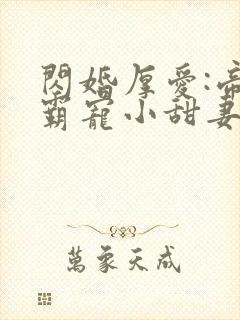 閃婚厚愛:帝
霸寵小甜妻
萬象天成